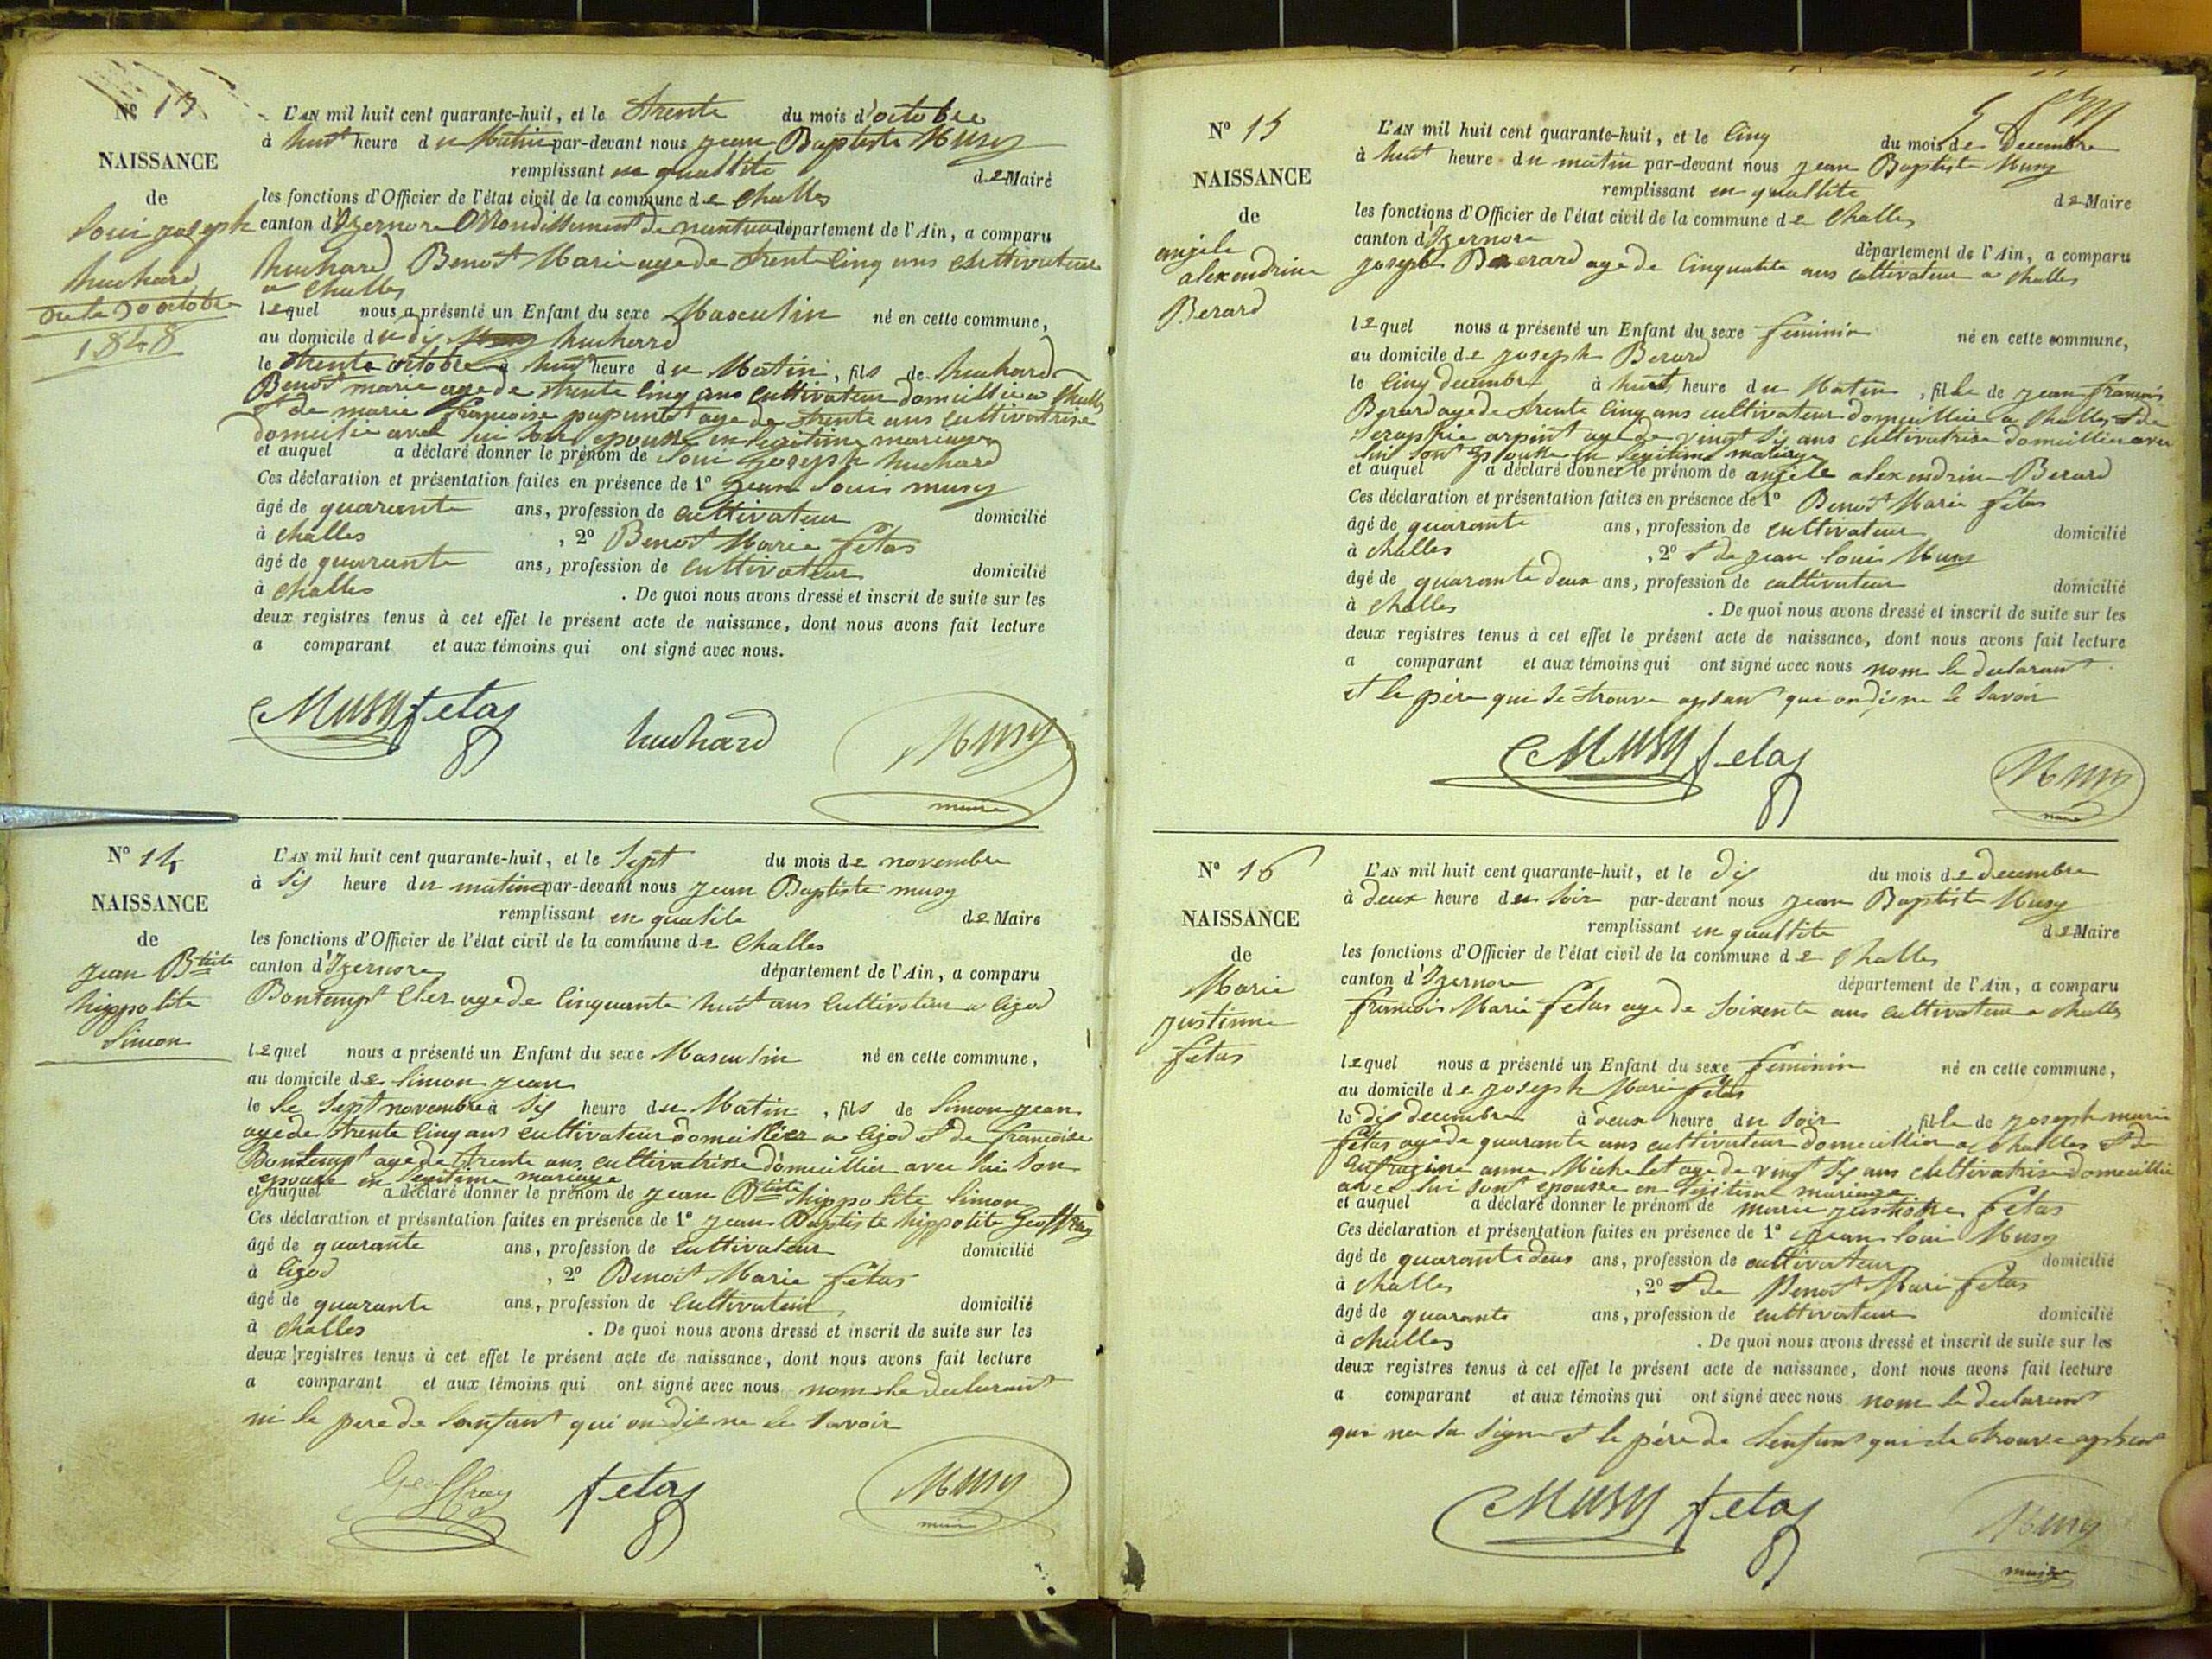 Nº 13
NAISSANCE
de
Loui joseph
huchard
ne le 30 octobre
1848
L'AN mil huit cent quarante-huit, et le trente du mois d'octobre
à huit heure du Matin par-devant nous jean Baptiste Musy
remplissant en quallite de Maire
les fonctions d'Officier de l'état civil de la commune de Challes
canton d'Izernore Arrondissement de nantua département de l'Ain, a comparu
huchard Benoit Marie age de trente Cinq ans Cultivateur
a Challes
lequel nous a présenté un Enfant du sexe Masculin né en cette commune,
au domicile du di huchard
le trente octobre à huit heure du Matin, fils de huchard
Benoit marie age de trente Cinq ans Cultivateur domicilie a Challes
et de marie francoise age de trente ans Cultivatrise
domicilie avec lui Son epousse en legitime mariage
et auquel a déclaré donner le prénom de Loui Joseph huchard
Ces déclaration et présentation faites en présence de 1º Jean Louis musy
âgé de quarante ans, profession de Cultivateur domicilié
à challes , 2º Benoit Marie fetas
âgé de quarante ans, profession de Cultivateur domicilié
à Challes . De quoi nous avons dressé et inscrit de suite sur les
deux registres tenus à cet effet le présent acte de naissance, dont nous avons fait lecture
a comparant et aux témoins qui ont signé avec nous.
Musy fetas huchard Musy
maire
Nº 14
NAISSANCE
de
jean Btiste
hippolite
Simon
L'AN mil huit cent quarante-huit, et le Sept du mois de novembre
à Sis heure du matin par-devant nous jean Baptiste musy
remplissant en qualite de Maire
les fonctions d'Officier de l'état civil de la commune de Challes
canton d'Izernore département de l'Ain, a comparu
Bontempt age de Cinquante huit ans Cultivateur a Cizod
lequel nous a présenté un Enfant du sexe Masculin né en cette commune,
au domicile de Simon jean
le le Sept novembre à Sis heure du Matin, fils de Simon jean
age de trente Cinq ans cultivateur domicillier a Cizod et de francoise
Bontempt age de trente ans cultivatrise domicillier avec lui Son
epouse en legitime mariage
et auquel a déclaré donner le prénom de jean Btiste hippolite Simon
Ces déclaration et présentation faites en présence de 1º jean Baptiste hippolite Geoffray
âgé de quarante ans, profession de Cultivateur domicilié
à Cizod , 2º Benoit Marie fetas
âgé de quarante ans, profession de Cultivateur domicilié
à Challes . De quoi nous avons dressé et inscrit de suite sur les
deux registres tenus à cet effet le présent acte de naissance, dont nous avons fait lecture
a comparant et aux témoins qui ont signé avec nous nom le declarant
ni le pere de Lenfant qui on dit ne le Savoir
Geoffray fetas Musy
maire
Nº 15
NAISSANCE
de
anjele
alexendrine
Berard
L'AN mil huit cent quarante-huit, et le Cinq du mois de Decembre
à huit heure du matin par-devant nous jean Baptiste Musy
remplissant en quallite de Maire
les fonctions d'Officier de l'état civil de la commune de Challes
canton d'Izernore département de l'Ain, a comparu
joseph Berard age de Cinquante ans cultivateur a Challes
lequel nous a présenté un Enfant du sexe feminin né en cette commune,
au domicile de joseph Berard
le Cinq decembre à huit heure du Matin, fille de jean francois
Berard age de trente Cinq ans cultivateur domicillie a Challes et de
Seraphie arpint age de vingt Sis ans cultivatrise domicillie avec
lui Sont Epousse en legitime mariage
et auquel a déclaré donner le prénom de anjele alexendrine Berard
Ces déclaration et présentation faites en présence de 1º Benoit Marie fetas
âgé de quarante ans, profession de Cultivateur domicilié
à challes , 2º et de jean Louis Musy
âgé de quarante deux ans, profession de cultivateur domicilié
à Challes . De quoi nous avons dressé et inscrit de suite sur les
deux registres tenus à cet effet le présent acte de naissance, dont nous avons fait lecture
a comparant et aux témoins qui ont signé avec nous nom le declarant
et le père qui se trouve apsant qui on di ne le Savoir
Musy fetas Musy
maire
Nº 16
NAISSANCE
de
Marie
justinne
fetas
L'AN mil huit cent quarante-huit, et le Dis du mois de Decembre
à deux heure du Soir par-devant nous jean Baptiste Musy
remplissant en quallite de Maire
les fonctions d'Officier de l'état civil de la commune de Challes
canton d'Izernore département de l'Ain, a comparu
francois Marie fetas age de Soixente ans cultivateur a challes
lequel nous a présenté un Enfant du sexe feminin né en cette commune,
au domicile de joseph Marie fetas
le dis decembre à deux heure du Soir, fille de joseph marie
fetas age de quarante ans cultivateur domicillier a Challes et de
anne Michelet age de vingt Sis ans Cultivatrise domicillie
avec lui Sont epousse en lejitime mariage
et auquel a déclaré donner le prénom de marie justinne fetas
Ces déclaration et présentation faites en présence de 1º jean Loui Musy
âgé de quarante deux ans, profession de cultivateur domicilié
à Challes , 2º et de Benoit Marie fetas
âgé de quarante ans, profession de cultivateur domicilié
à challes . De quoi nous avons dressé et inscrit de suite sur les
deux registres tenus à cet effet le présent acte de naissance, dont nous avons fait lecture
a comparant et aux témoins qui ont signé avec nous nom le declarant
qui ne Sa Signe et le père de Lenfant qui se trouve apsent
Musy fetas Musy
maire